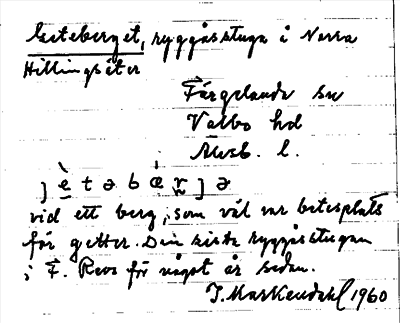 Geteberget, ryggåsstuga i Norra
Hillingsäter
Färgelanda sn
Valbo hd
Älvsb. l.
j è t ə b œ́ r j ə
vid ett berg, som väl var betesplats
för getter. Den sista ryggåsstugan
i F. Revs för något år sedan.
J. Markendahl 1960